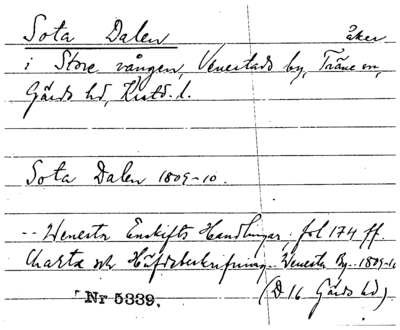 Sota Dalen åker
i Store vången, Venestads by, Träne sn,
Gärds hd, Kristd. l.
Sota Dalen 1809-10.
-- Wenesta Enskifts Handlingar, fol 174 ff.
Charta och Häfdebeskrifning.. Wenesta By.. 1809-10
(D 16 Gärds hd)
Nr 5339.